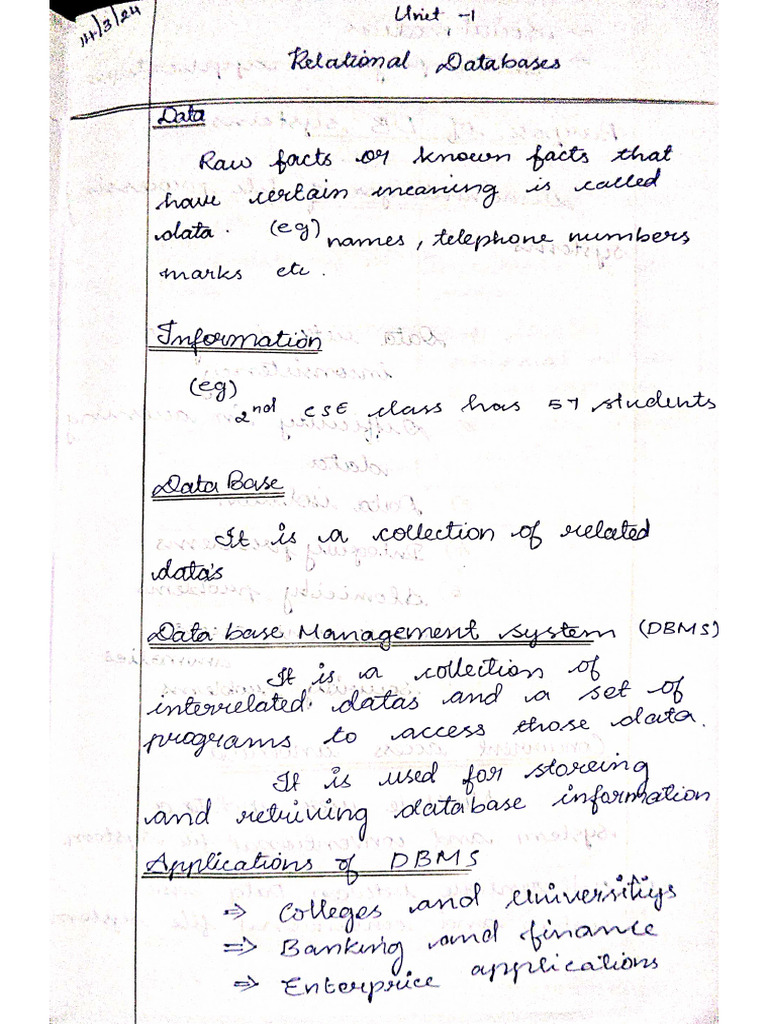 14/3/24
Unit -1
Relational Databases
Data
Raw facts or known facts that
have certain meaning is called
data. (eg) names, telephone numbers
marks etc.
Information
(eg)
2nd CSE class has 57 students
Data Base
It is a collection of related
data's
Data base Management system (DBMS)
It is a collection of
interrelated datas and a set of
programs to access those data.
It is used for storeing
and retriving database information
Applications of DBMS
⇒ Colleges and Universitiys
⇒ Banking and finance
⇒ Enterprice applications